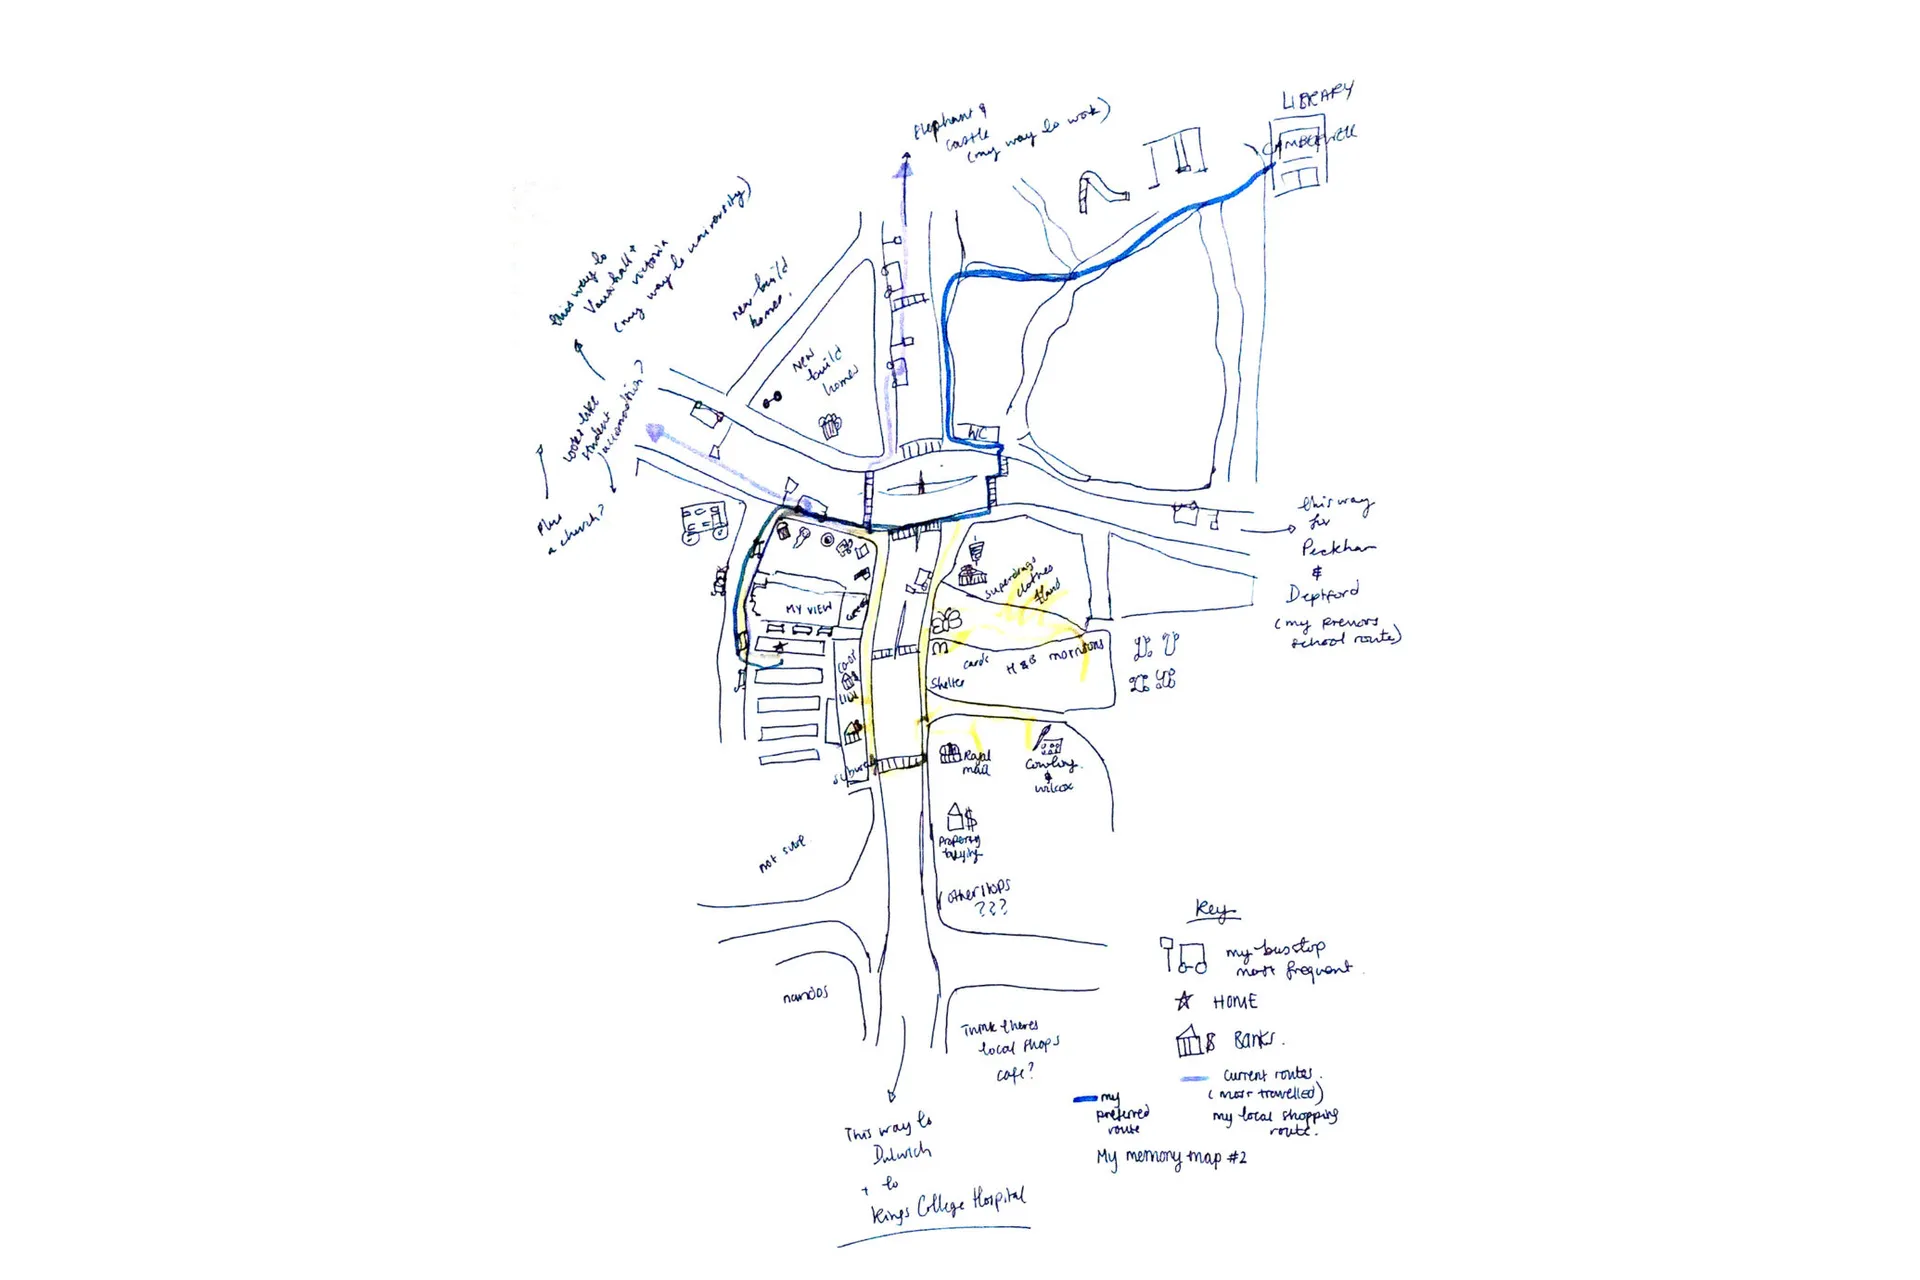 LIBRARY
CAMBERWELL
Elephant &
castle
(my way to work)
this way to
Vauxhall +
victoria
(my way to university)
new build
homes.
New
build
homes
looks like
student
accomodation?
Plus
a church?
WC
this way
for
Peckham
&
Deptford
(my previous
school route)
Superdrugs
clothes
&
MY VIEW
co-op
M
cards
H&B
morrisons
Shelter
Royal
mail
Cowling
&
wilcox
subway
Property
buying
not sure
other shops
???
nandos
Think theres
local shops
cafe?
This way to
Dulwich
+ to
Kings College Hospital
Key
my bus stop
most frequent.
HOME
$ Banks.
current routes.
(most travelled)
my local shopping
route.
my
preferred
route
My memory map #2